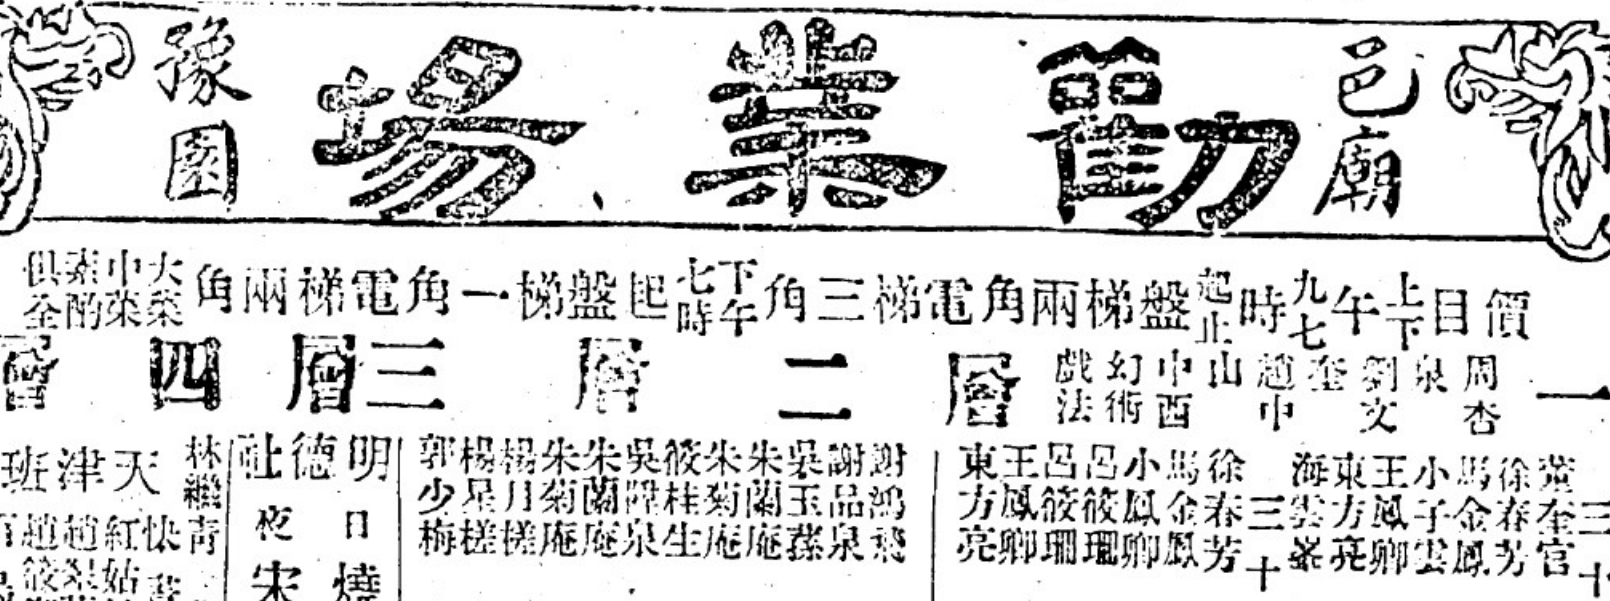 邑廟
勸業場
豫園
價目上下午九七時起止盤梯兩角電梯三角下午七時起盤梯一角電梯兩角大菜中菜素酌俱全
一層
二層
三層
四層
周杏泉
劉文奎
趙中山
中西幻術戲法
三十
黃奎官
徐春芳
馬金鳳
小子雲
王鳳卿
東方亮
海雲峯
三十
徐春芳
馬金鳳
小鳳卿
呂筱珊
呂筱珊
王鳳卿
東方亮
謝鴻飛
謝品泉
吳玉蓀
朱蘭庵
朱菊庵
筱桂生
吳陞泉
朱蘭庵
朱菊庵
楊月槎
楊星槎
郭少梅
明德社
日
燒
夜
宋
林繼青
天津班
快書
紅姑
趙
趙筱